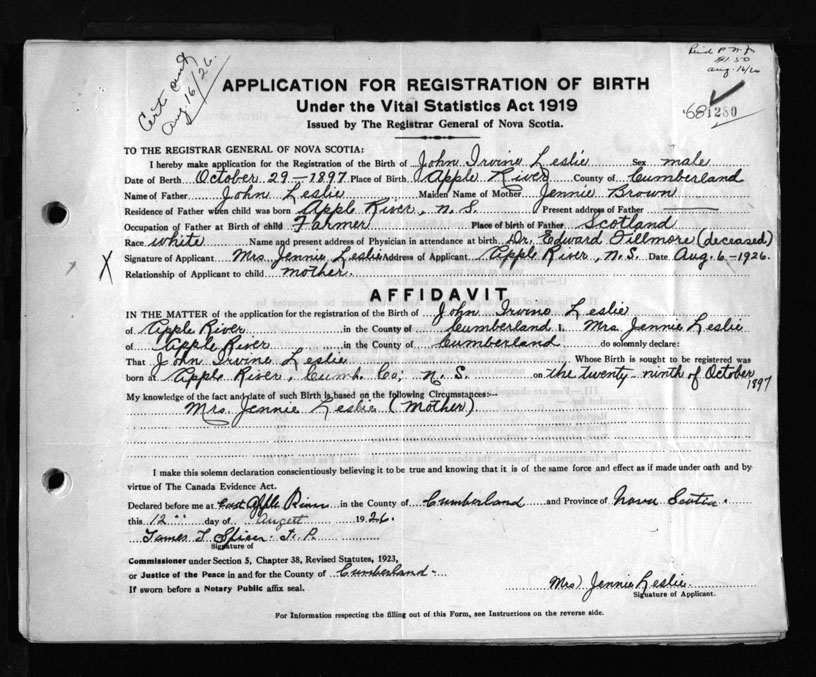 Cert sent
Aug. 16/26.
Aug. 16/26
APPLICATION FOR REGISTRATION OF BIRTH
Under the Vital Statistics Act 1919
Issued by The Registrar General of Nova Scotia.
1280
TO THE REGISTRAR GENERAL OF NOVA SCOTIA:
I hereby make application for the Registration of the Birth of John Irvine Leslie Sex male
Date of Birth October 29-1897 Place of Birth Apple River County of Cumberland
Name of Father John Leslie Maiden Name of Mother Jennie Brown
Residence of Father when child was born Apple River, N.S. Present address of Father
Occupation of Father at Birth of child Farmer Place of birth of Father Scotland
Race white Name and present address of Physician in attendance at birth Dr. Edward Fillmore (deceased)
Signature of Applicant Mrs. Jennie Leslie Address of Applicant Apple River, N.S. Date Aug. 6-1926.
X
Relationship of Applicant to child mother.
AFFIDAVIT
IN THE MATTER of the application for the registration of the Birth of John Irvine Leslie
of Apple River in the County of Cumberland I, Mrs. Jennie Leslie
of Apple River in the County of Cumberland do solemnly declare:
That John Irvine Leslie Whose Birth is sought to be registered was
born at Apple River, Cumb. Co; N.S. on the twenty-ninth of October 1897
My knowledge of the fact and date of such Birth is based on the following Circumstances:--
Mrs. Jennie Leslie (Mother)
I make this solemn declaration conscientiously believing it to be true and knowing that it is of the same force and effect as if made under oath and by
virtue of The Canada Evidence Act.
Declared before me at East Apple River in the County of Cumberland and Province of Nova Scotia.
this 12 day of August 1926.
James T Spicer J. P.
Signature of
Commissioner under Section 5, Chapter 38, Revised Statutes, 1923,
or Justice of the Peace in and for the County of Cumberland
If sworn before a Notary Public affix seal.
Mrs) Jennie Leslie
Signature of Applicant.
For Information respecting the filling out of this Form, see Instructions on the reverse side.